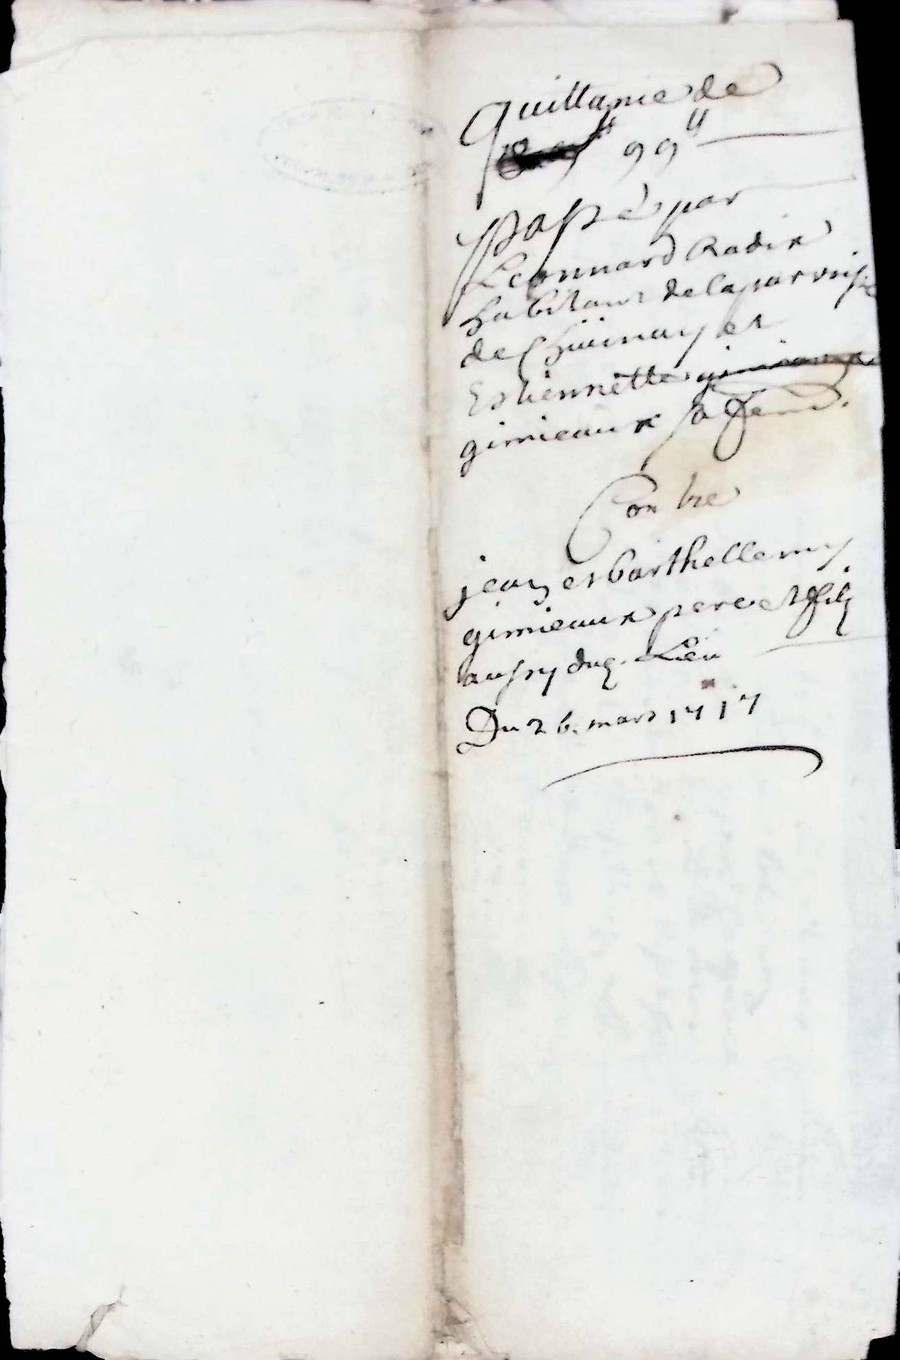 Quittance de
99ᵗᵗ
Passé par
Leonnard Radix
habitant de la parroisse
de et
Estiennette
gimieaux sa fem.
Contre
jean et barthellemy
gimieaux pere et fils
aussy dud. Lieu
Du 26. mars 1717